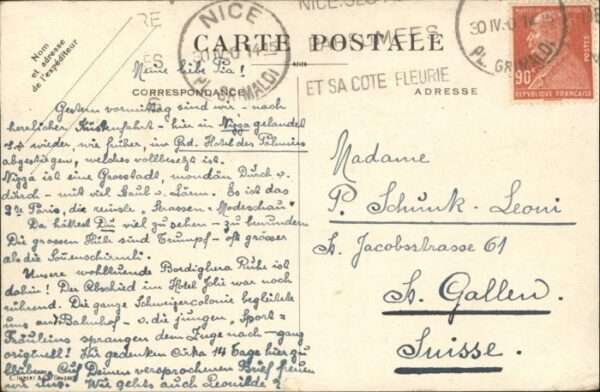 NICE
30 IV. 0 14 15
PL. GRIMALDI
NICE. SES
ET SA CÔTE FLEURIE
30 IV. 0
PL. GRIMALDI
90c
RÉPUBLIQUE FRANÇAISE
CARTE POSTALE
Nom
et adresse
de l'expéditeur
CORRESPONDANCE
ADRESSE
Meine liebe Pia!
Gestern vormittag sind wir - nach
herrlicher Küstenfahrt - hier in Nizza gelandet
u. wieder, wie früher, im Grd. Hotel des Palmiers
abgestiegen, welches vollbesetzt ist.
Nizza ist eine Grosstadt, mondän durch u.
durch - mit viel u. Lärm. Es ist das
2te Paris, die reinste „Strassen-Modeschau"
Da hättest Du viel zu sehen - zu bewundern
Die grossen Hüte sind Trumpf - oft grösser
als die Sonnenschirmli.
Unsere wohltuende Bordighera Ruhe ist
dahin! Der Abschied im Hotel Jolie war noch
rührend. Die ganze Schweizercolonie begleitete
uns an Bahnhof - u. die jungen „Sport-
Fräuleins sprangen dem Zuge nach - ganz
originell! Wir gedenken Cirka 14 Tage hier zu
bleiben. Auf Deinen versprochenen Brief freuen
wir uns. Wie gehts auch Leonilde?
Madame
P. Schunk-Leoni
St. Jacobsstrasse 61
St. Gallen.
Suisse.